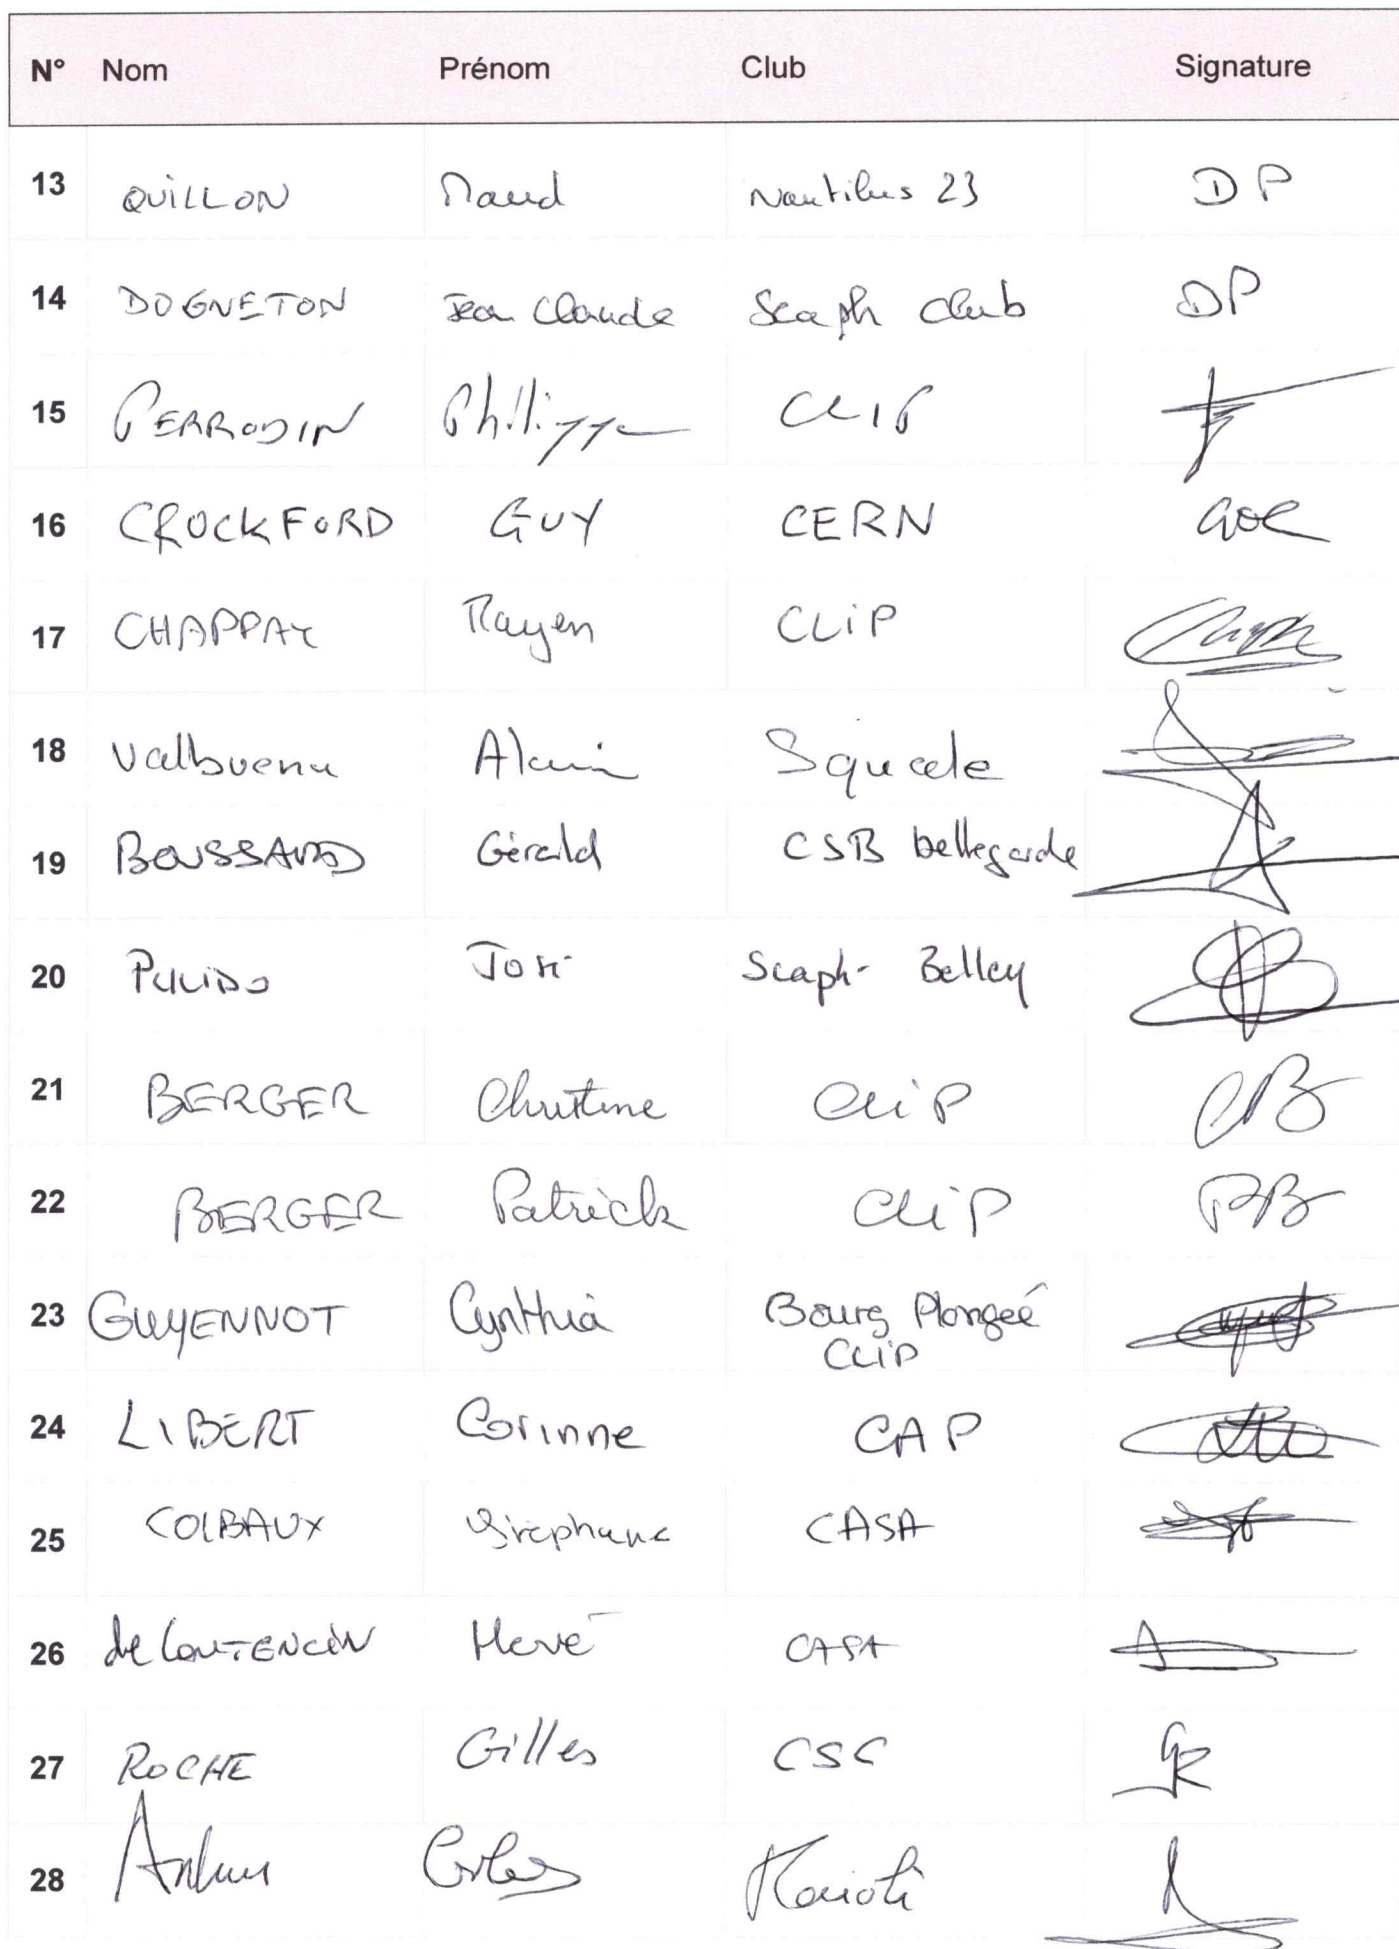 N° Nom Prénom Club Signature
13 QUILLON Maud Nautilus 23 DP
14 DOGNETON Jean Claude Scaph Club DP
15 PERRODIN Philippe CLIP
16 CROCKFORD GUY CERN GOC
17 CHAPPAY Rayen CLiP
18 Valbuena Alain Squale
19 BOUSSARD Gérald CSB bellegarde
20 PULIDO José Scaph- Belley
21 BERGER Christine CLiP CB
22 BERGER Patrick CLiP PB
23 GUYENNOT Cynthia Bourg Plongée
CLiP
24 LIBERT Corinne CAP
25 COLBAUX Stéphane CASA
26 de CONTENCIN Hervé CASA
27 ROCHE Gilles CSC GR
28